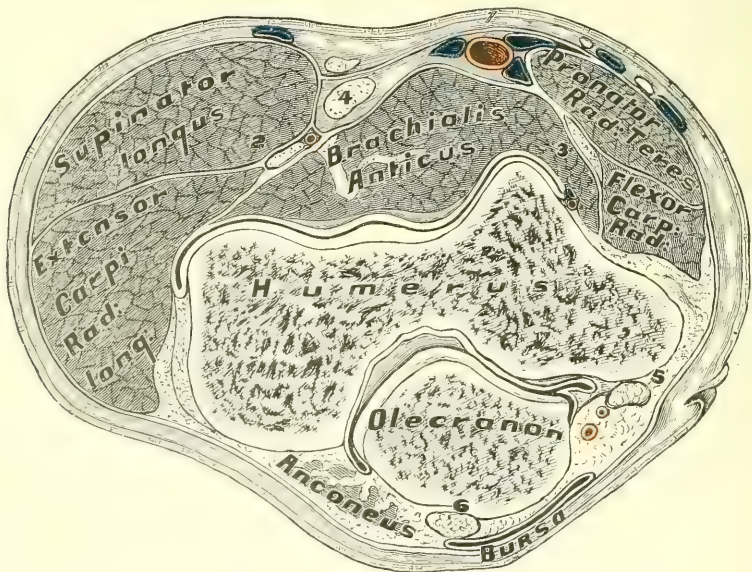 1
7
Supinator
longus
4
2
Brachialis
Anticus
3
Pronator
Rad: Teres
Flexor
Carp:
Rad:
Extensor
Carpi
Rad:
long:
Humerus
5
Olecranon
Anconeus
6
Bursa